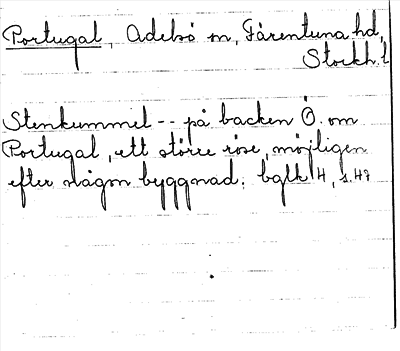 Portugal, Adelsö sn, Färentuna hd,
Stockh. l
Stenkummel -- på backen Ö. om
Portugal, ett större röse, möjligen
efter någon byggnad. bglh 4, s. 47